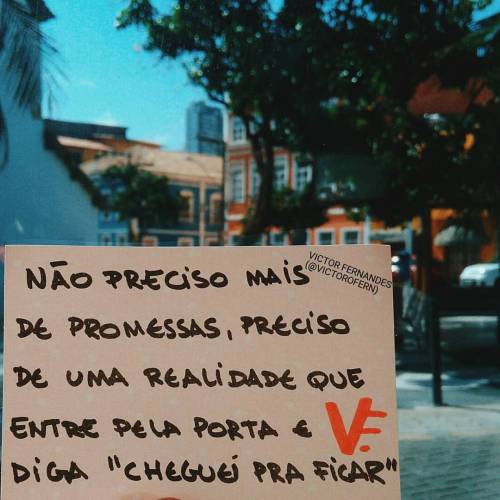 NÃO PRECISO MAIS
VICTOR FERNANDES
(@VICTOROFERN)
DE PROMESSAS, PRECISO
DE UMA REALIDADE QUE
ENTRE PELA PORTA E
VF.
DIGA "CHEGUEI PRA FICAR"